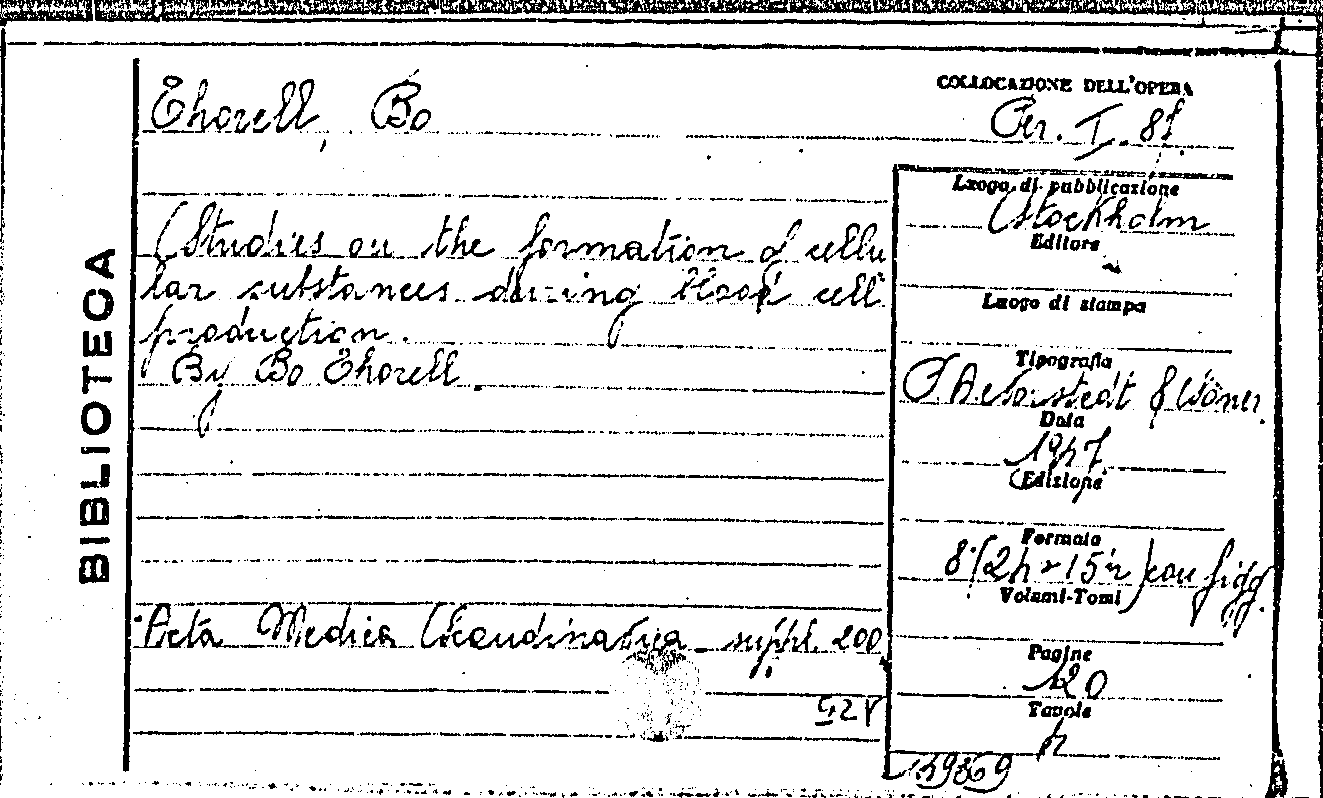 BIBLIOTECA
Thorell, Bo
COLLOCAZIONE DELL'OPERA
Per. I. 81.
Studies on the formation of cellu
lar substances during blood cell
production.
By Bo Thorell.
Acta Medica Scandinavica suppl. 200
Luogo di pubblicazione
Stockholm
Editore
Luogo di stampa
Tipografia
& Söner.
Data
1947.
Edizione
Formato
con figg.
Volumi-Tomi
Pagine
120
Tavole